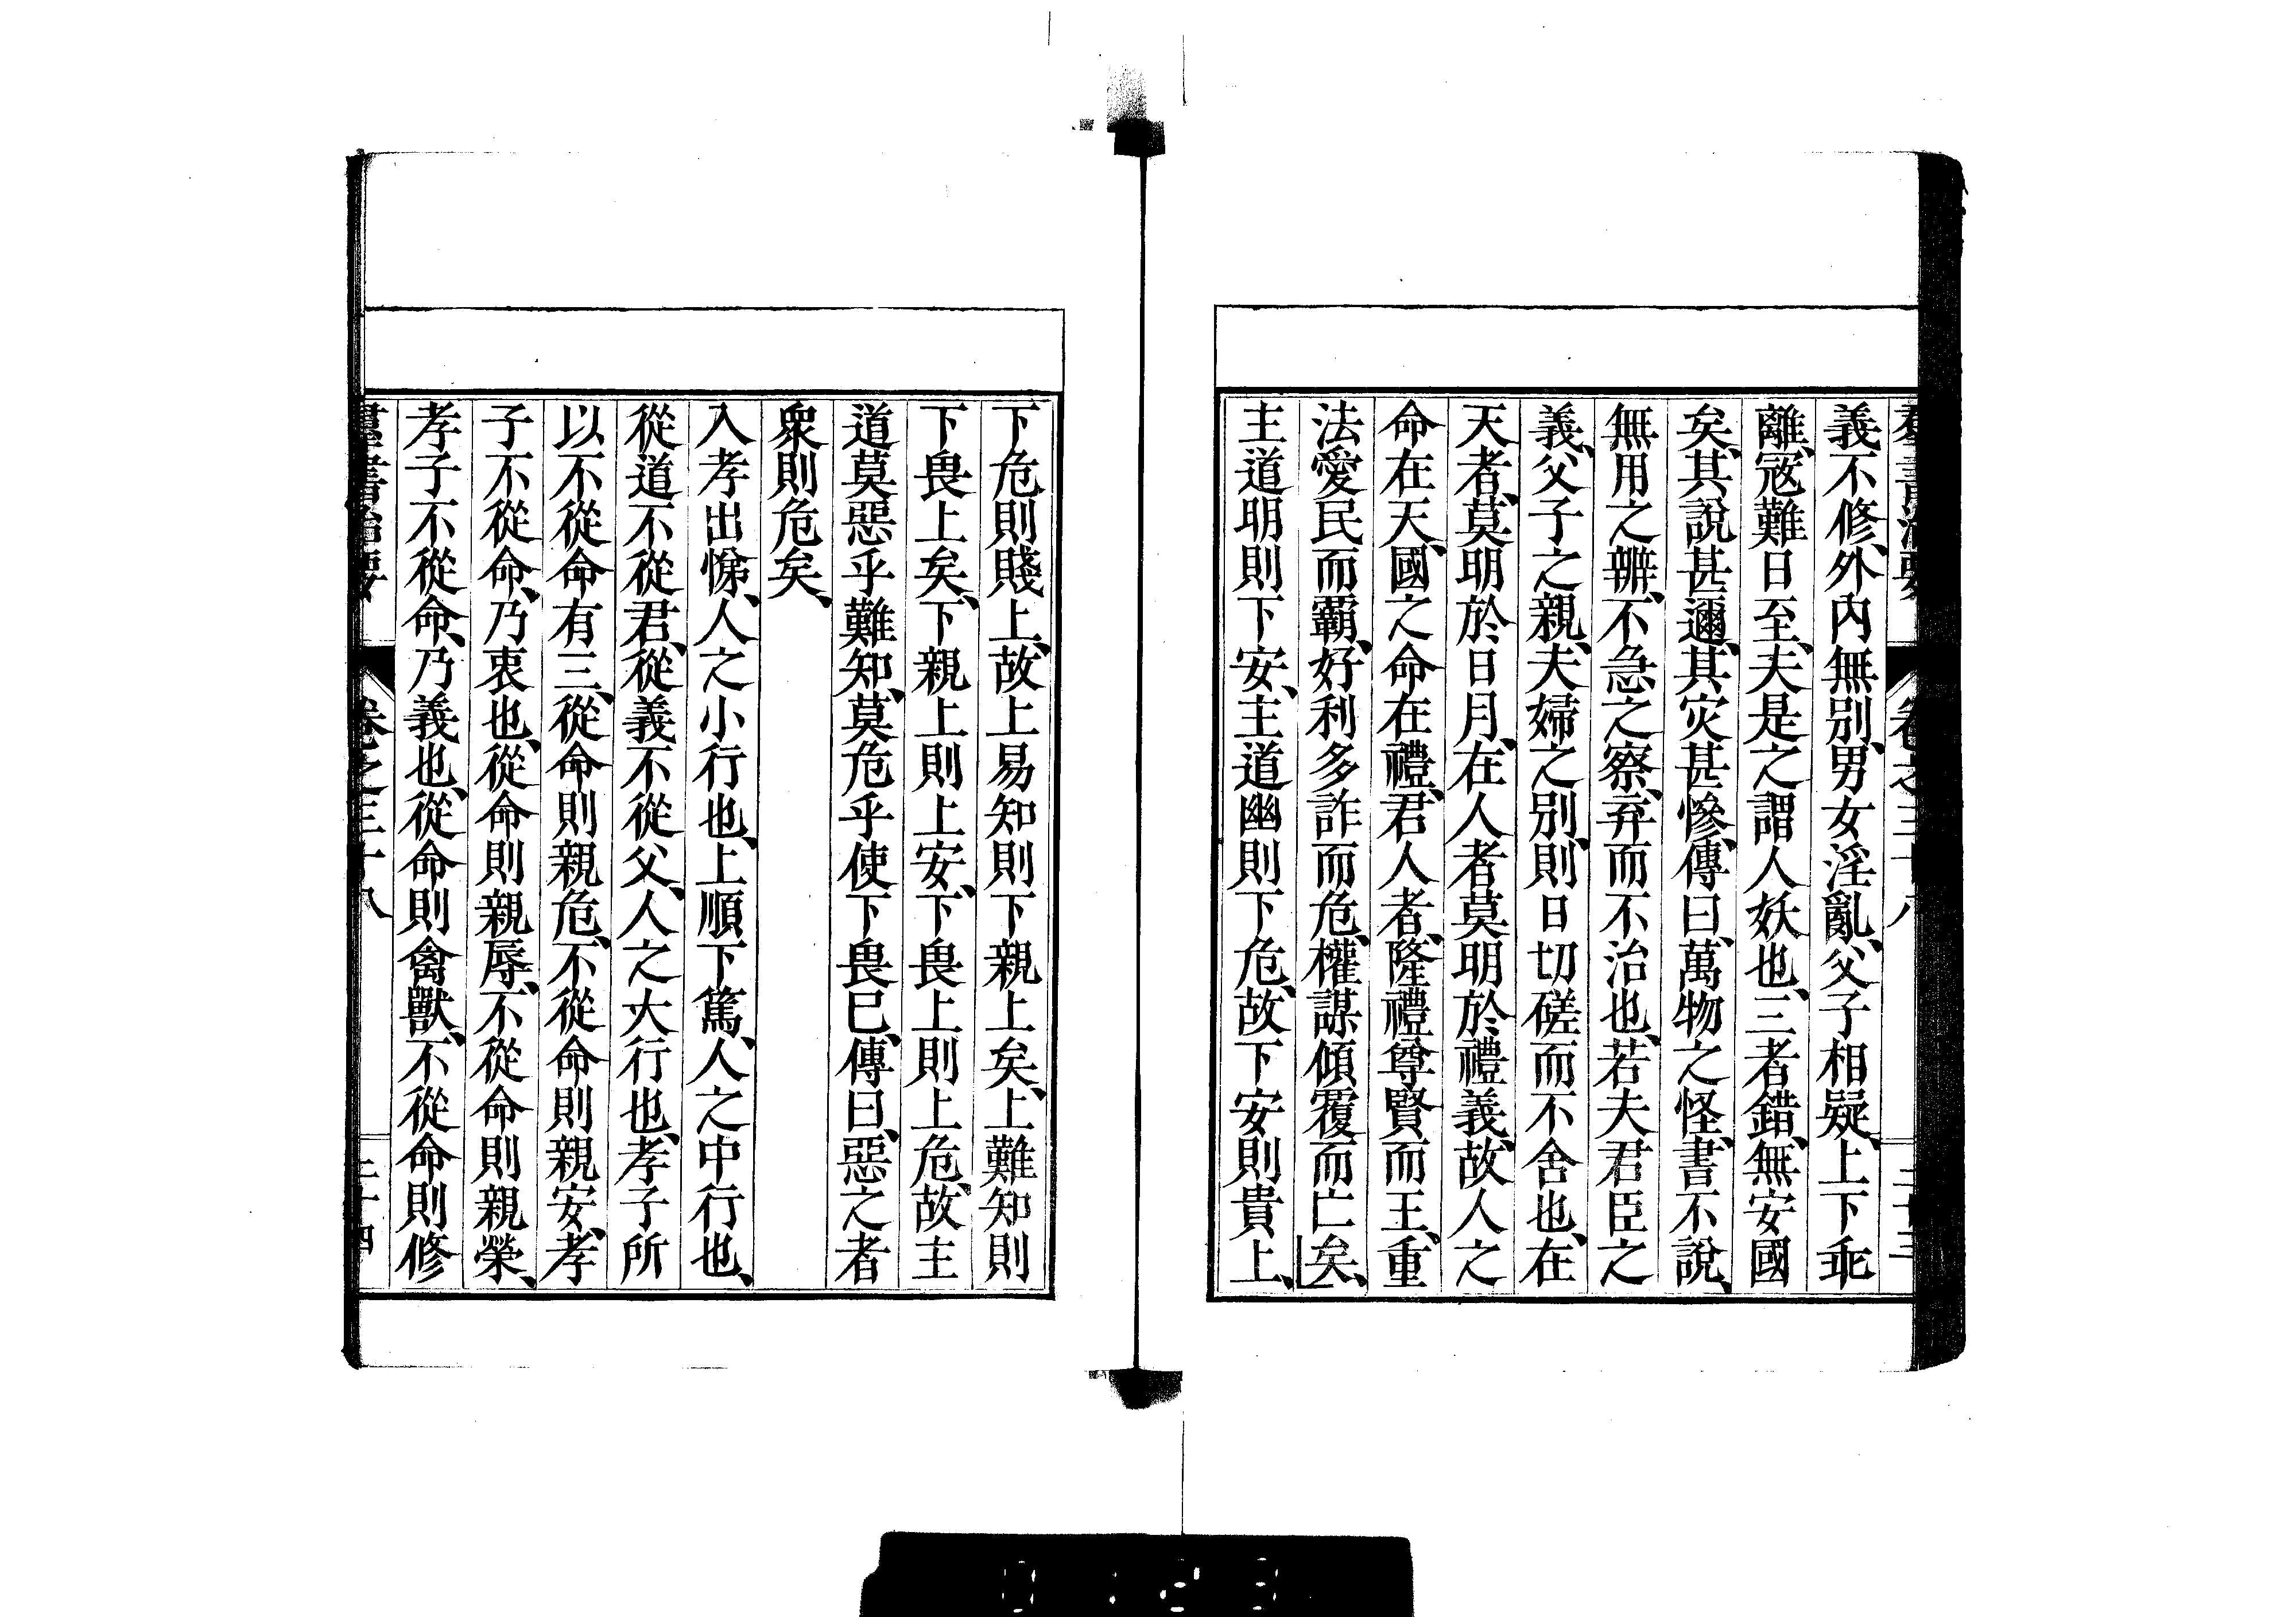 羣書治要 卷之三十八 二十三
義不修、外內無別、男女淫亂、父子相疑、上下乖
離、寇難日至、夫是之謂人妖也、三者錯、無安國
矣、其說甚邇、其灾甚慘、傳曰、萬物之怪、書不說、
無用之辨、不急之察、弃而不治也、若夫君臣之
義、父子之親、夫婦之別、則日切磋而不舍也、在
天者、莫明於日月、在人者莫明於禮義、故人之
命在天、國之命在禮、君人者、隆禮尊賢而王、重
法愛民而霸、好利多詐而危、權謀傾覆而亡矣、
主道明則下安、主道幽則下危、故下安則貴上、
下危則賤上、故上易知則下親上矣、上難知則
下畏上矣、下親上則上安、下畏上則上危、故主
道莫惡乎難知、莫危乎使下畏已、傳曰、惡之者
衆則危矣、
入孝出悌、人之小行也、上順下篤、人之中行也、
從道不從君、從義不從父、人之大行也、孝子所
以不從命有三、從命則親危、不從命則親安、孝
子不從命、乃衷也、從命則親辱、不從命則親榮、
孝子不從命、乃義也、從命則禽獸、不從命則修
羣書治要 卷之三十八 二十四